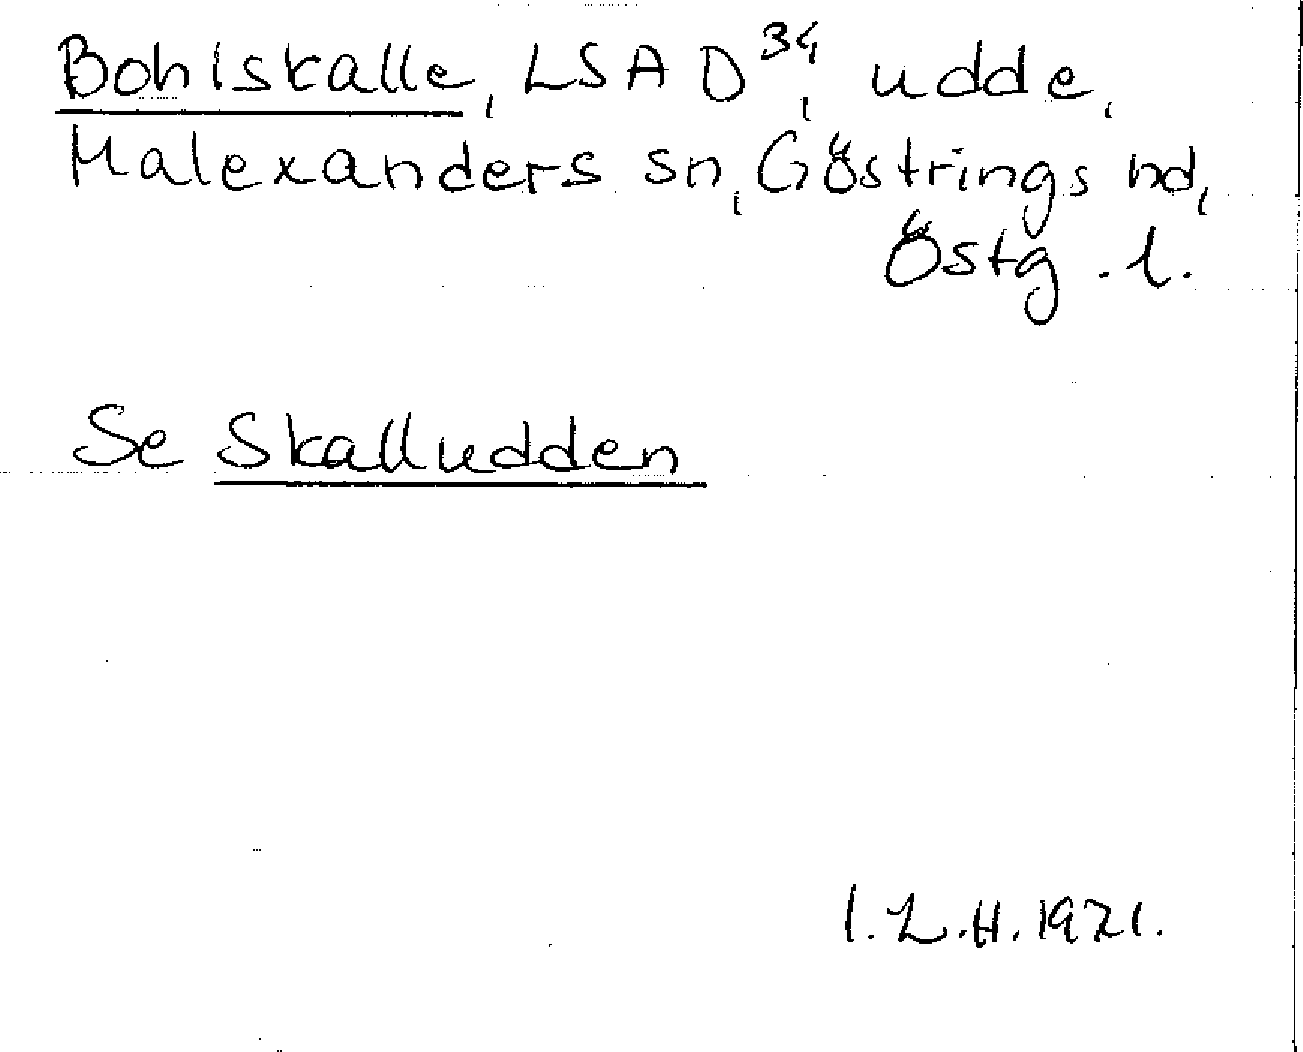 Bohlskalle, LSA D³⁴, udde,
Malexanders sn, Göstrings hd,
Östg. l.
Se Skalludden
I.L.H. 1921.